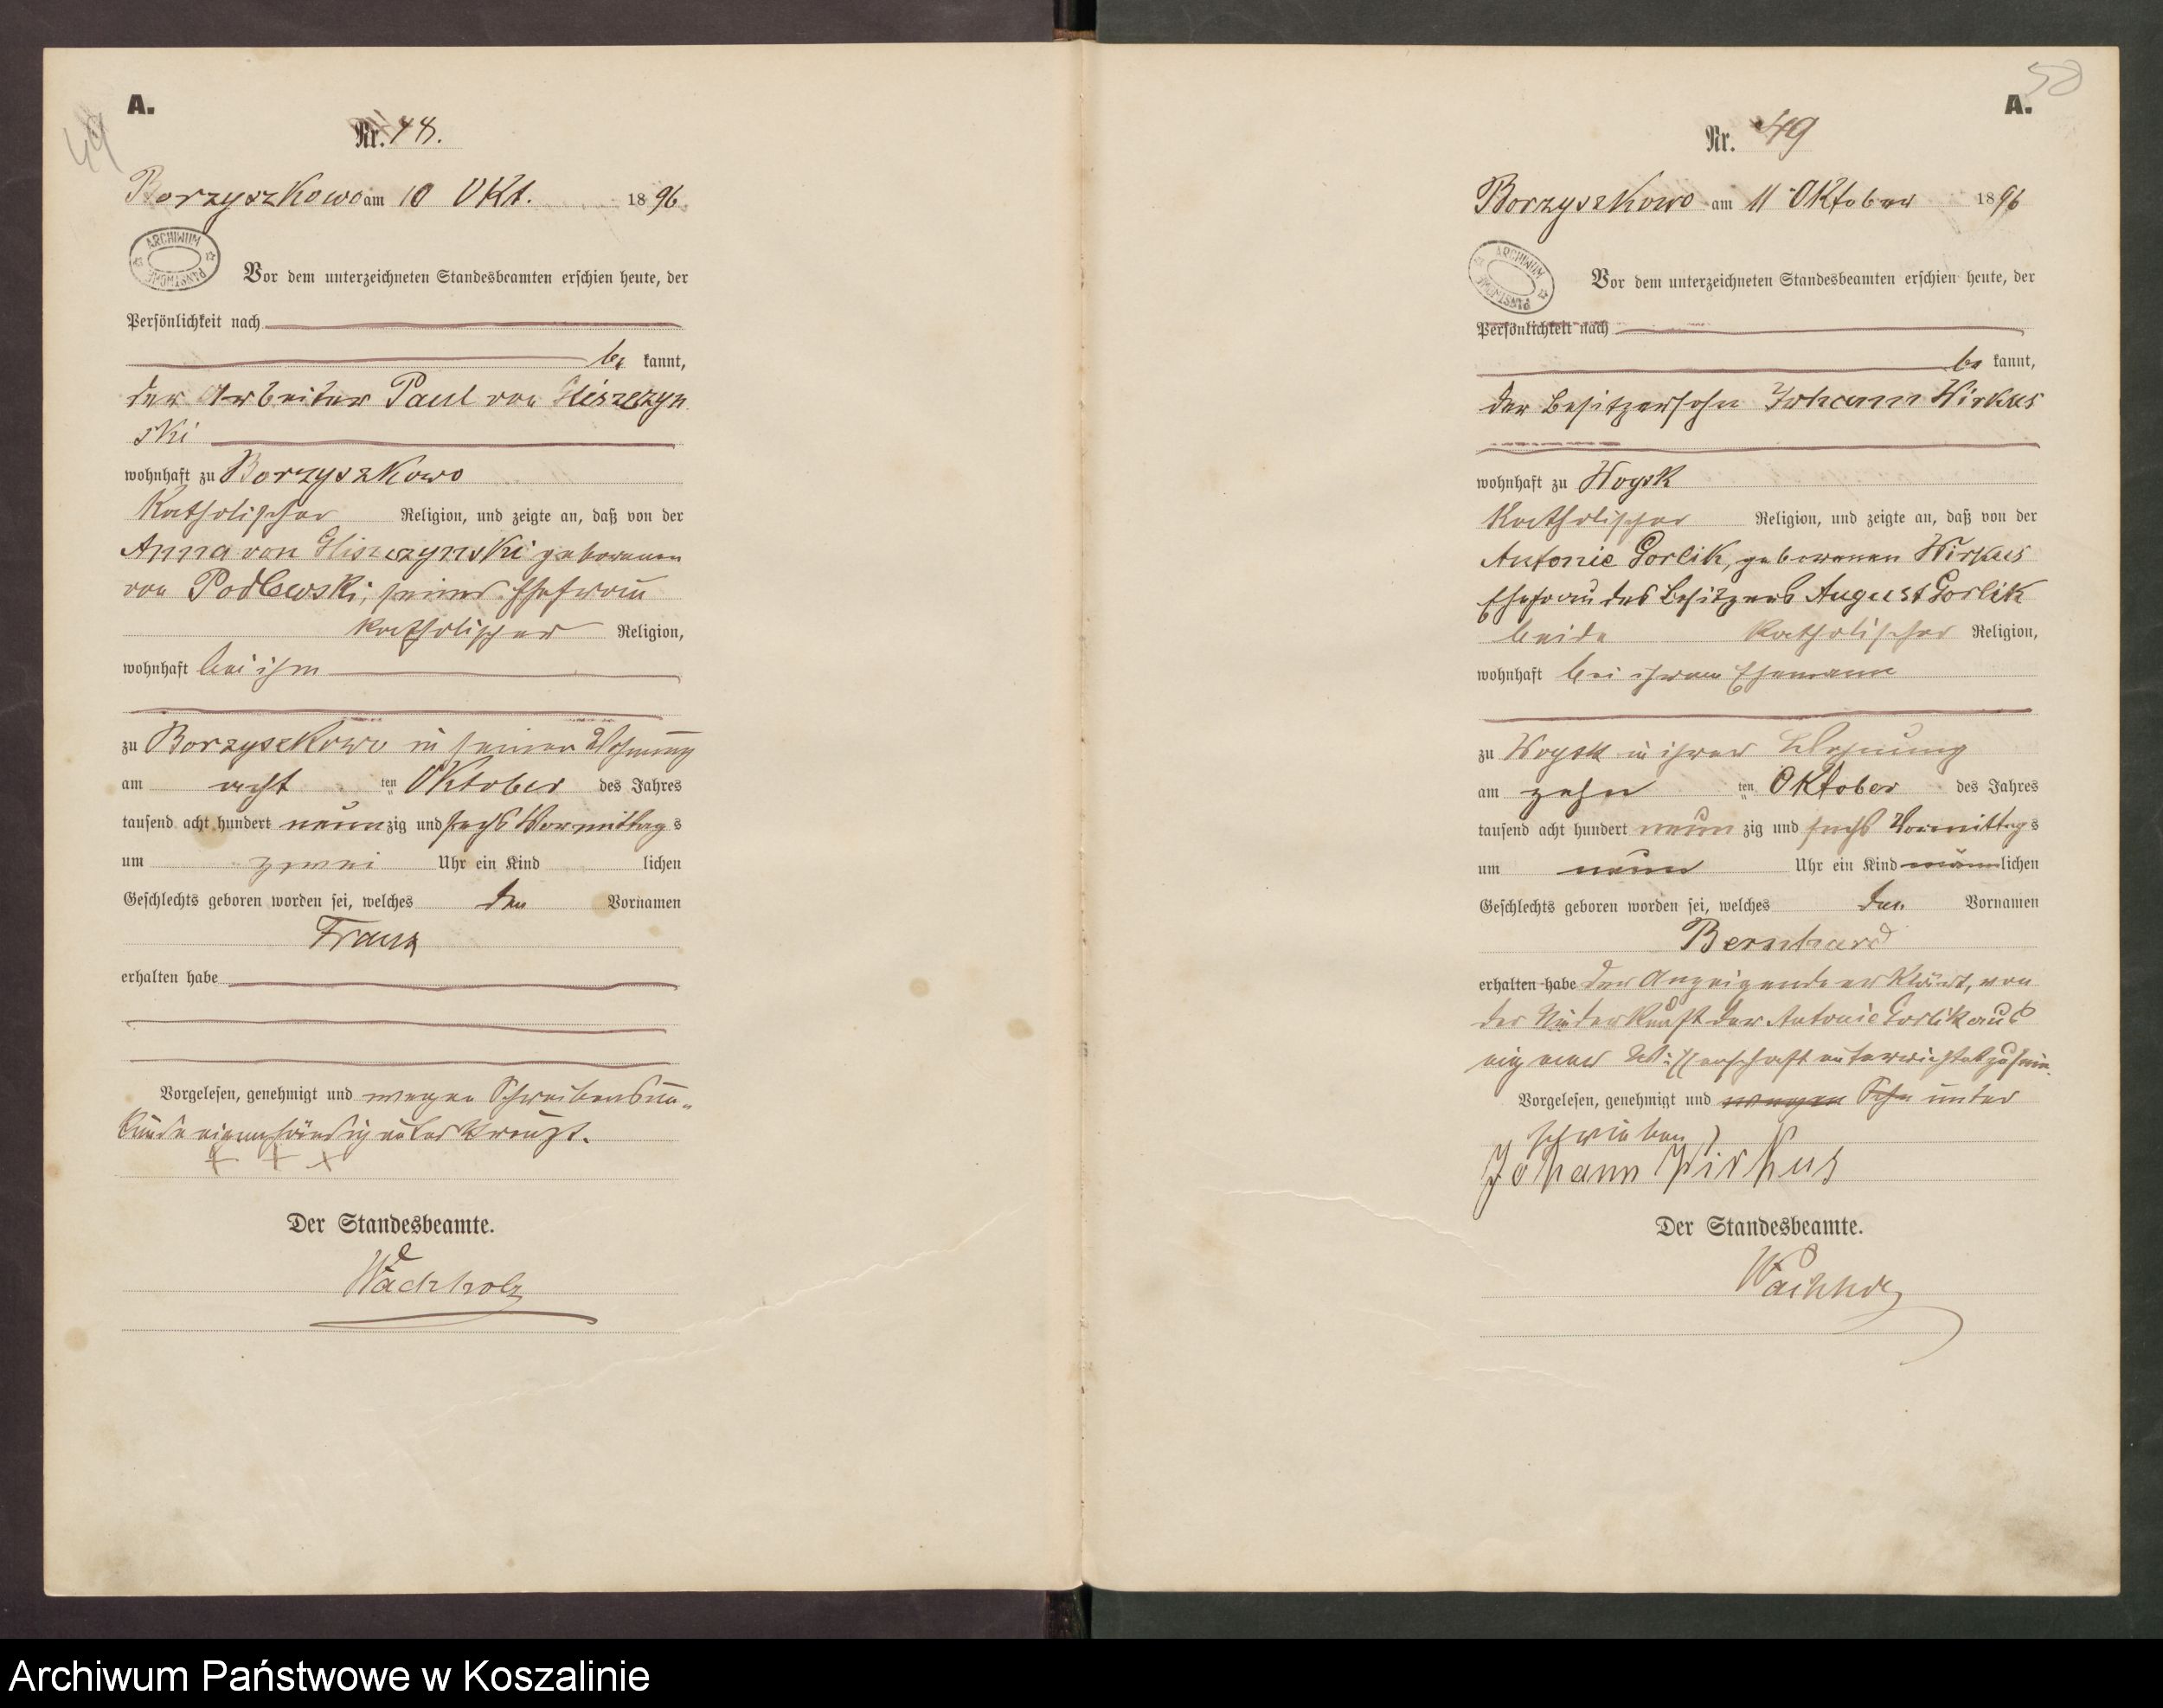 49
A.
Nr. 48.
Borzyszkowo am 10 Okt. 1896
ARCHIWUM PAŃSTWOWE
Vor dem unterzeichneten Standesbeamten erschien heute, der
Persönlichkeit nach
be kannt,
der Arbeiter Paul von Gliszczyn
ski
wohnhaft zu Borzyszkowo
katholischer Religion, und zeigte an, daß von der
Anna von Gliszczynski geborenen
von Podlewski, seiner Ehefrau
katholischer Religion,
wohnhaft bei ihm
zu Borzyszkowo in seiner Wohnung
am acht ten Oktober des Jahres
tausend acht hundert neunzig und sechs Vormittags
um zwei Uhr ein Kind lichen
Geschlechts geboren worden sei, welches den Vornamen
Franz
erhalten habe
Vorgelesen, genehmigt und wegen Schreibensun-
kunde eigenhändig unterkreuzt.
+ + +
Der Standesbeamte.
Wachholz
50
A.
Nr. 49
Borzyszkowo am 11 Oktober 1896
ARCHIWUM PAŃSTWOWE
Vor dem unterzeichneten Standesbeamten erschien heute, der
Persönlichkeit nach
be kannt,
der Besitzersohn Johann Wirkus
wohnhaft zu Woysk
katholischer Religion, und zeigte an, daß von der
Antonie Gorlik, geborenen Wirkus
Ehefrau des Besitzers August Gorlik
beide katholischer Religion,
wohnhaft bei ihrem Ehemanne
zu Woysk in ihrer Wohnung
am zehn ten Oktober des Jahres
tausend acht hundert neun zig und sechs Vormittags
um neun Uhr ein Kind männlichen
Geschlechts geboren worden sei, welches den Vornamen
Bernhard
erhalten habe der Anzeigende erklärt, von
der Niederkunft der Antonie Gorlik aus
eigener Wissenschaft unterrichtet zu sein.
Vorgelesen, genehmigt und wegen Schr unter
schrieben
Johann Wirkus
Der Standesbeamte.
Wachholz
Archiwum Państwowe w Koszalinie